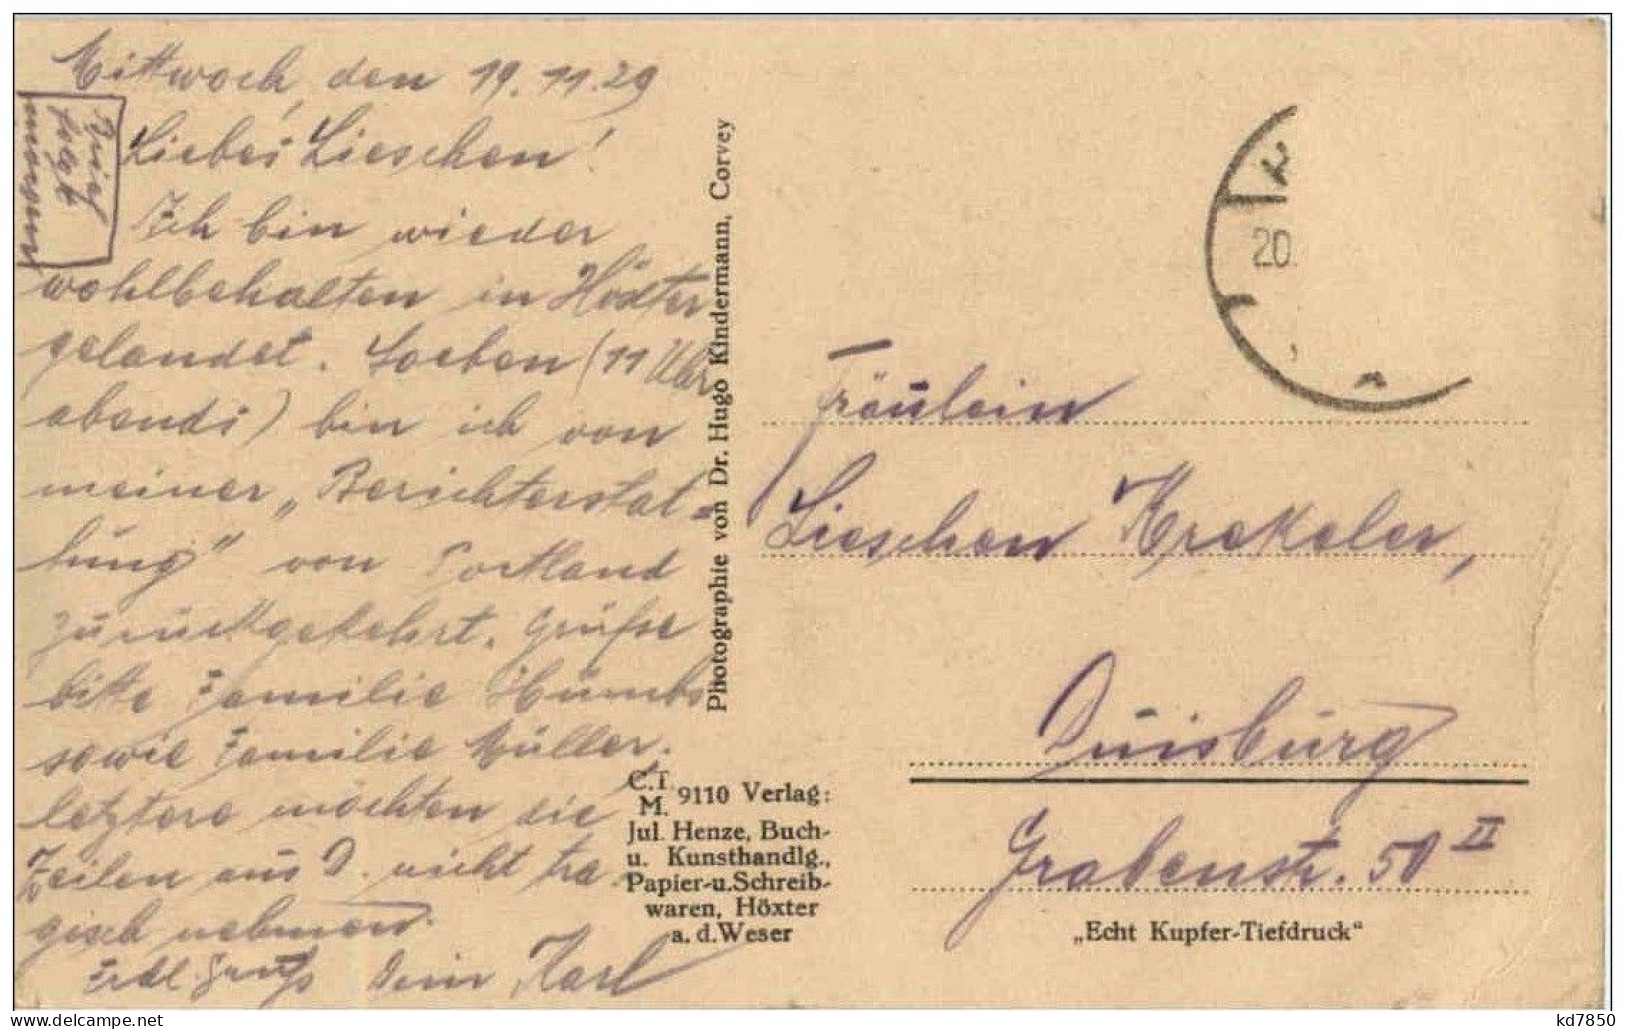 Mittwoch, den 19.11.29
Brief
folgt
morgen
Liebes Lieschen!
Ich bin wieder
wohlbehalten in Höxter
gelandet. Soeben (11 Uhr
abends) bin ich von
meiner „Berichterstat-
tung" von Portland
zurückgekehrt. Grüße
bitte Familie
sowie Familie Müller.
letztere möchten die
Zeilen aus D. nicht tra-
gisch nehmen.
Grufs Dein Karl
Photographie von Dr. Hugo Kindermann, Corvey
C.T.
M. 9110 Verlag:
Jul. Henze, Buch-
u. Kunsthandlg.,
Papier-u.Schreib-
waren, Höxter
a. d. Weser
20.
Fräulein
Lieschen Krekeler,
Duisburg
Grabenstr. 50 II
„Echt Kupfer-Tiefdruck"
kd7850